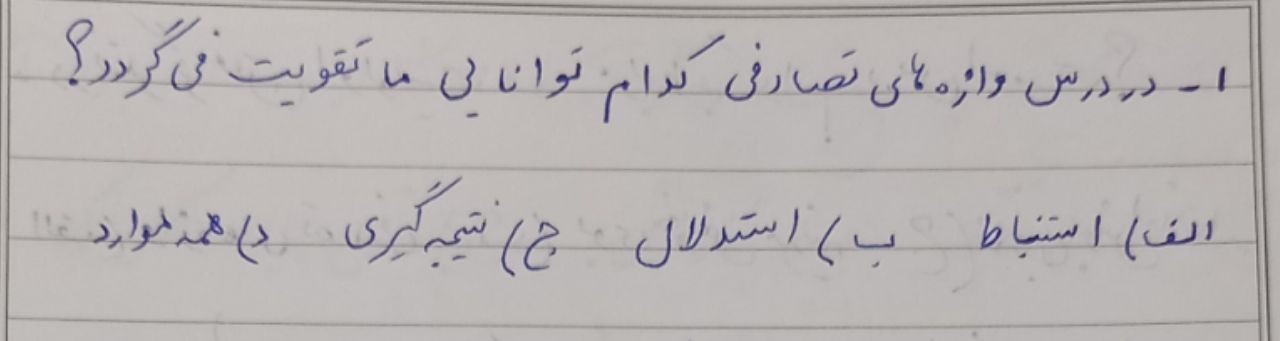 ۱- در درس واژه های تصادفی کدام توانایی ما تقویت می گردد؟
الف) استنباط ب) استدلال ج) نتیجه گیری د) همه موارد